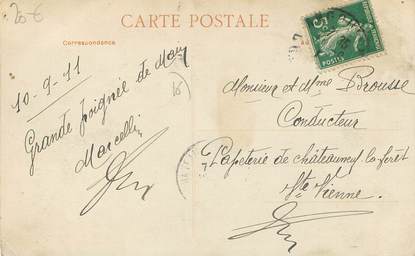 20€
CARTE POSTALE
Correspondance
5c
POSTES
10-9-11
Grande poignée de Main
Marcellin
18
Monsieur et Mme Brousse
Conducteur
Papeterie de châteauneuf la forêt
Hte Vienne.